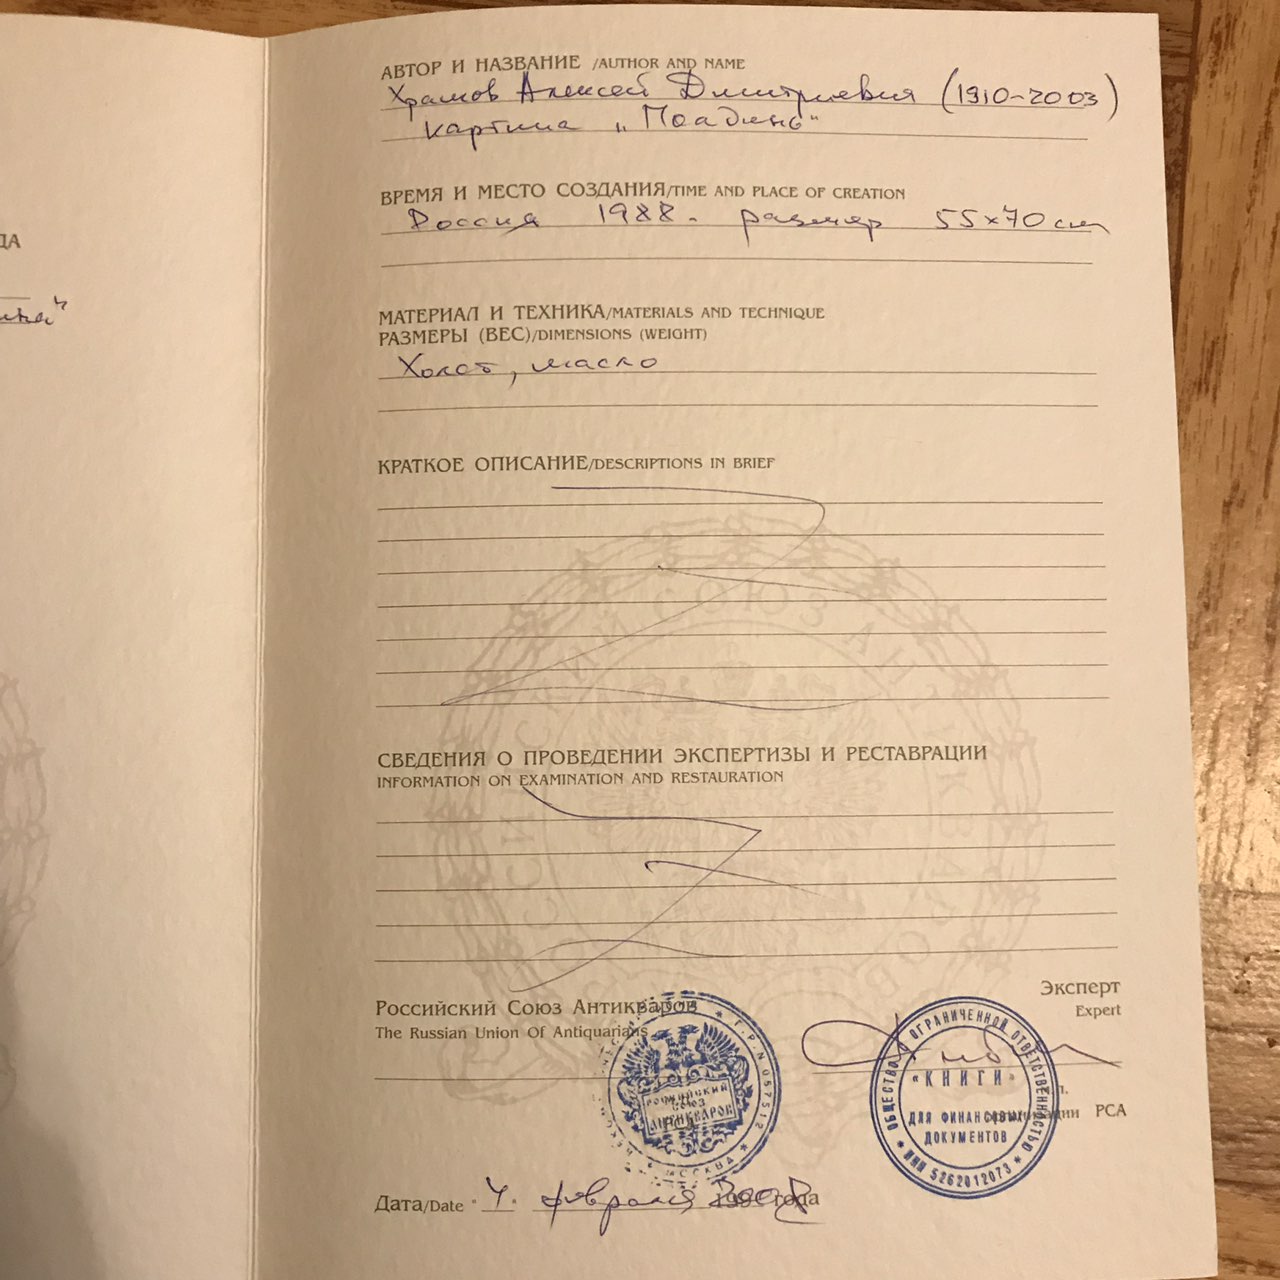 ДА
АВТОР И НАЗВАНИЕ /AUTHOR AND NAME
Храмов Алексей Дмитриевич (1910-2003)
картина „Поадино"
ВРЕМЯ И МЕСТО СОЗДАНИЯ/TIME AND PLACE OF CREATION
Россия 1988. размер 55х70 см
МАТЕРИАЛ И ТЕХНИКА/MATERIALS AND TECHNIQUE
РАЗМЕРЫ (ВЕС)/DIMENSIONS (WEIGHT)
Холст, масло
КРАТКОЕ ОПИСАНИЕ/DESCRIPTIONS IN BRIEF
СВЕДЕНИЯ О ПРОВЕДЕНИИ ЭКСПЕРТИЗЫ И РЕСТАВРАЦИИ
INFORMATION ON EXAMINATION AND RESTAURATION
Эксперт
Expert
Российский Союз Антикваров
The Russian Union Of Antiquarians
Г.Р.N 057512
РОССИЙСКИЙ
СОЮЗ
АНТИКВАРОВ
МОСКВА
ОБЩЕСТВО С ОГРАНИЧЕННОЙ ОТВЕТСТВЕННОСТЬЮ
«КНИГИ»
ДЛЯ ФИНАНСОВЫХ
ДОКУМЕНТОВ
ИНН 5262012073
РСА
Дата/Date "4" февраля 2008 года